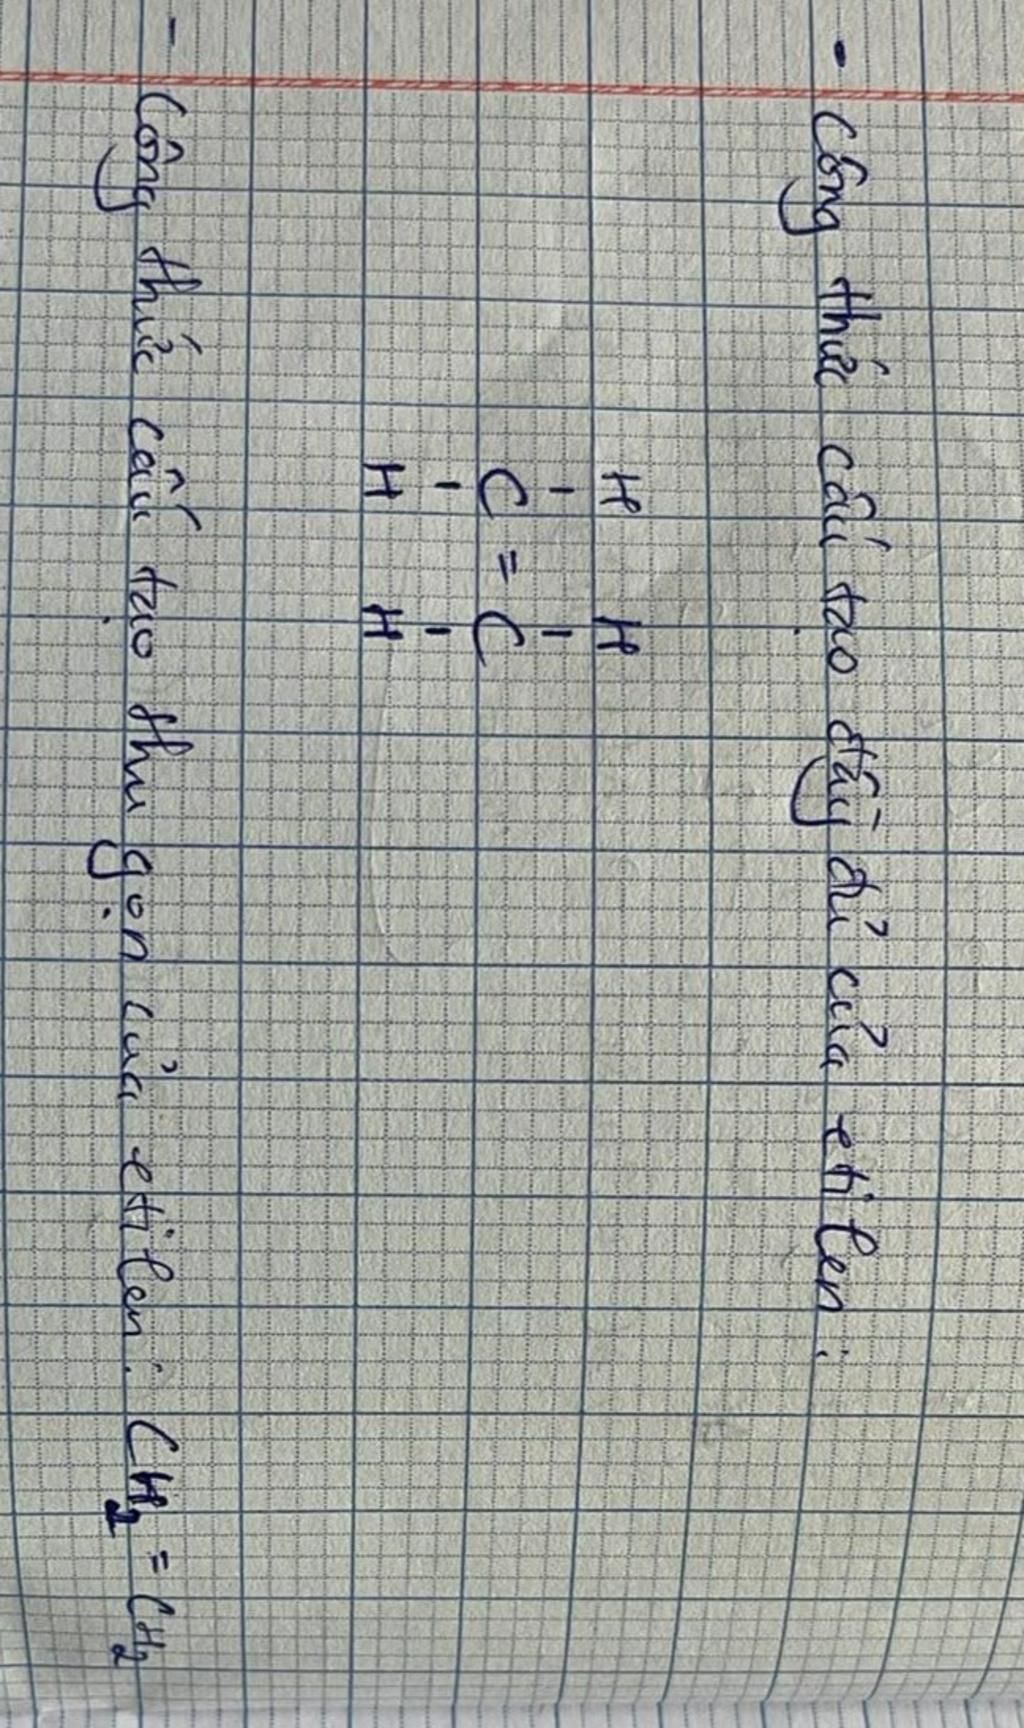 - Công thức cấu tạo đầy đủ của etilen:
H H
| |
C = C
| |
H H
- Công thức cấu tạo thu gọn của etilen: CH₂ = CH₂